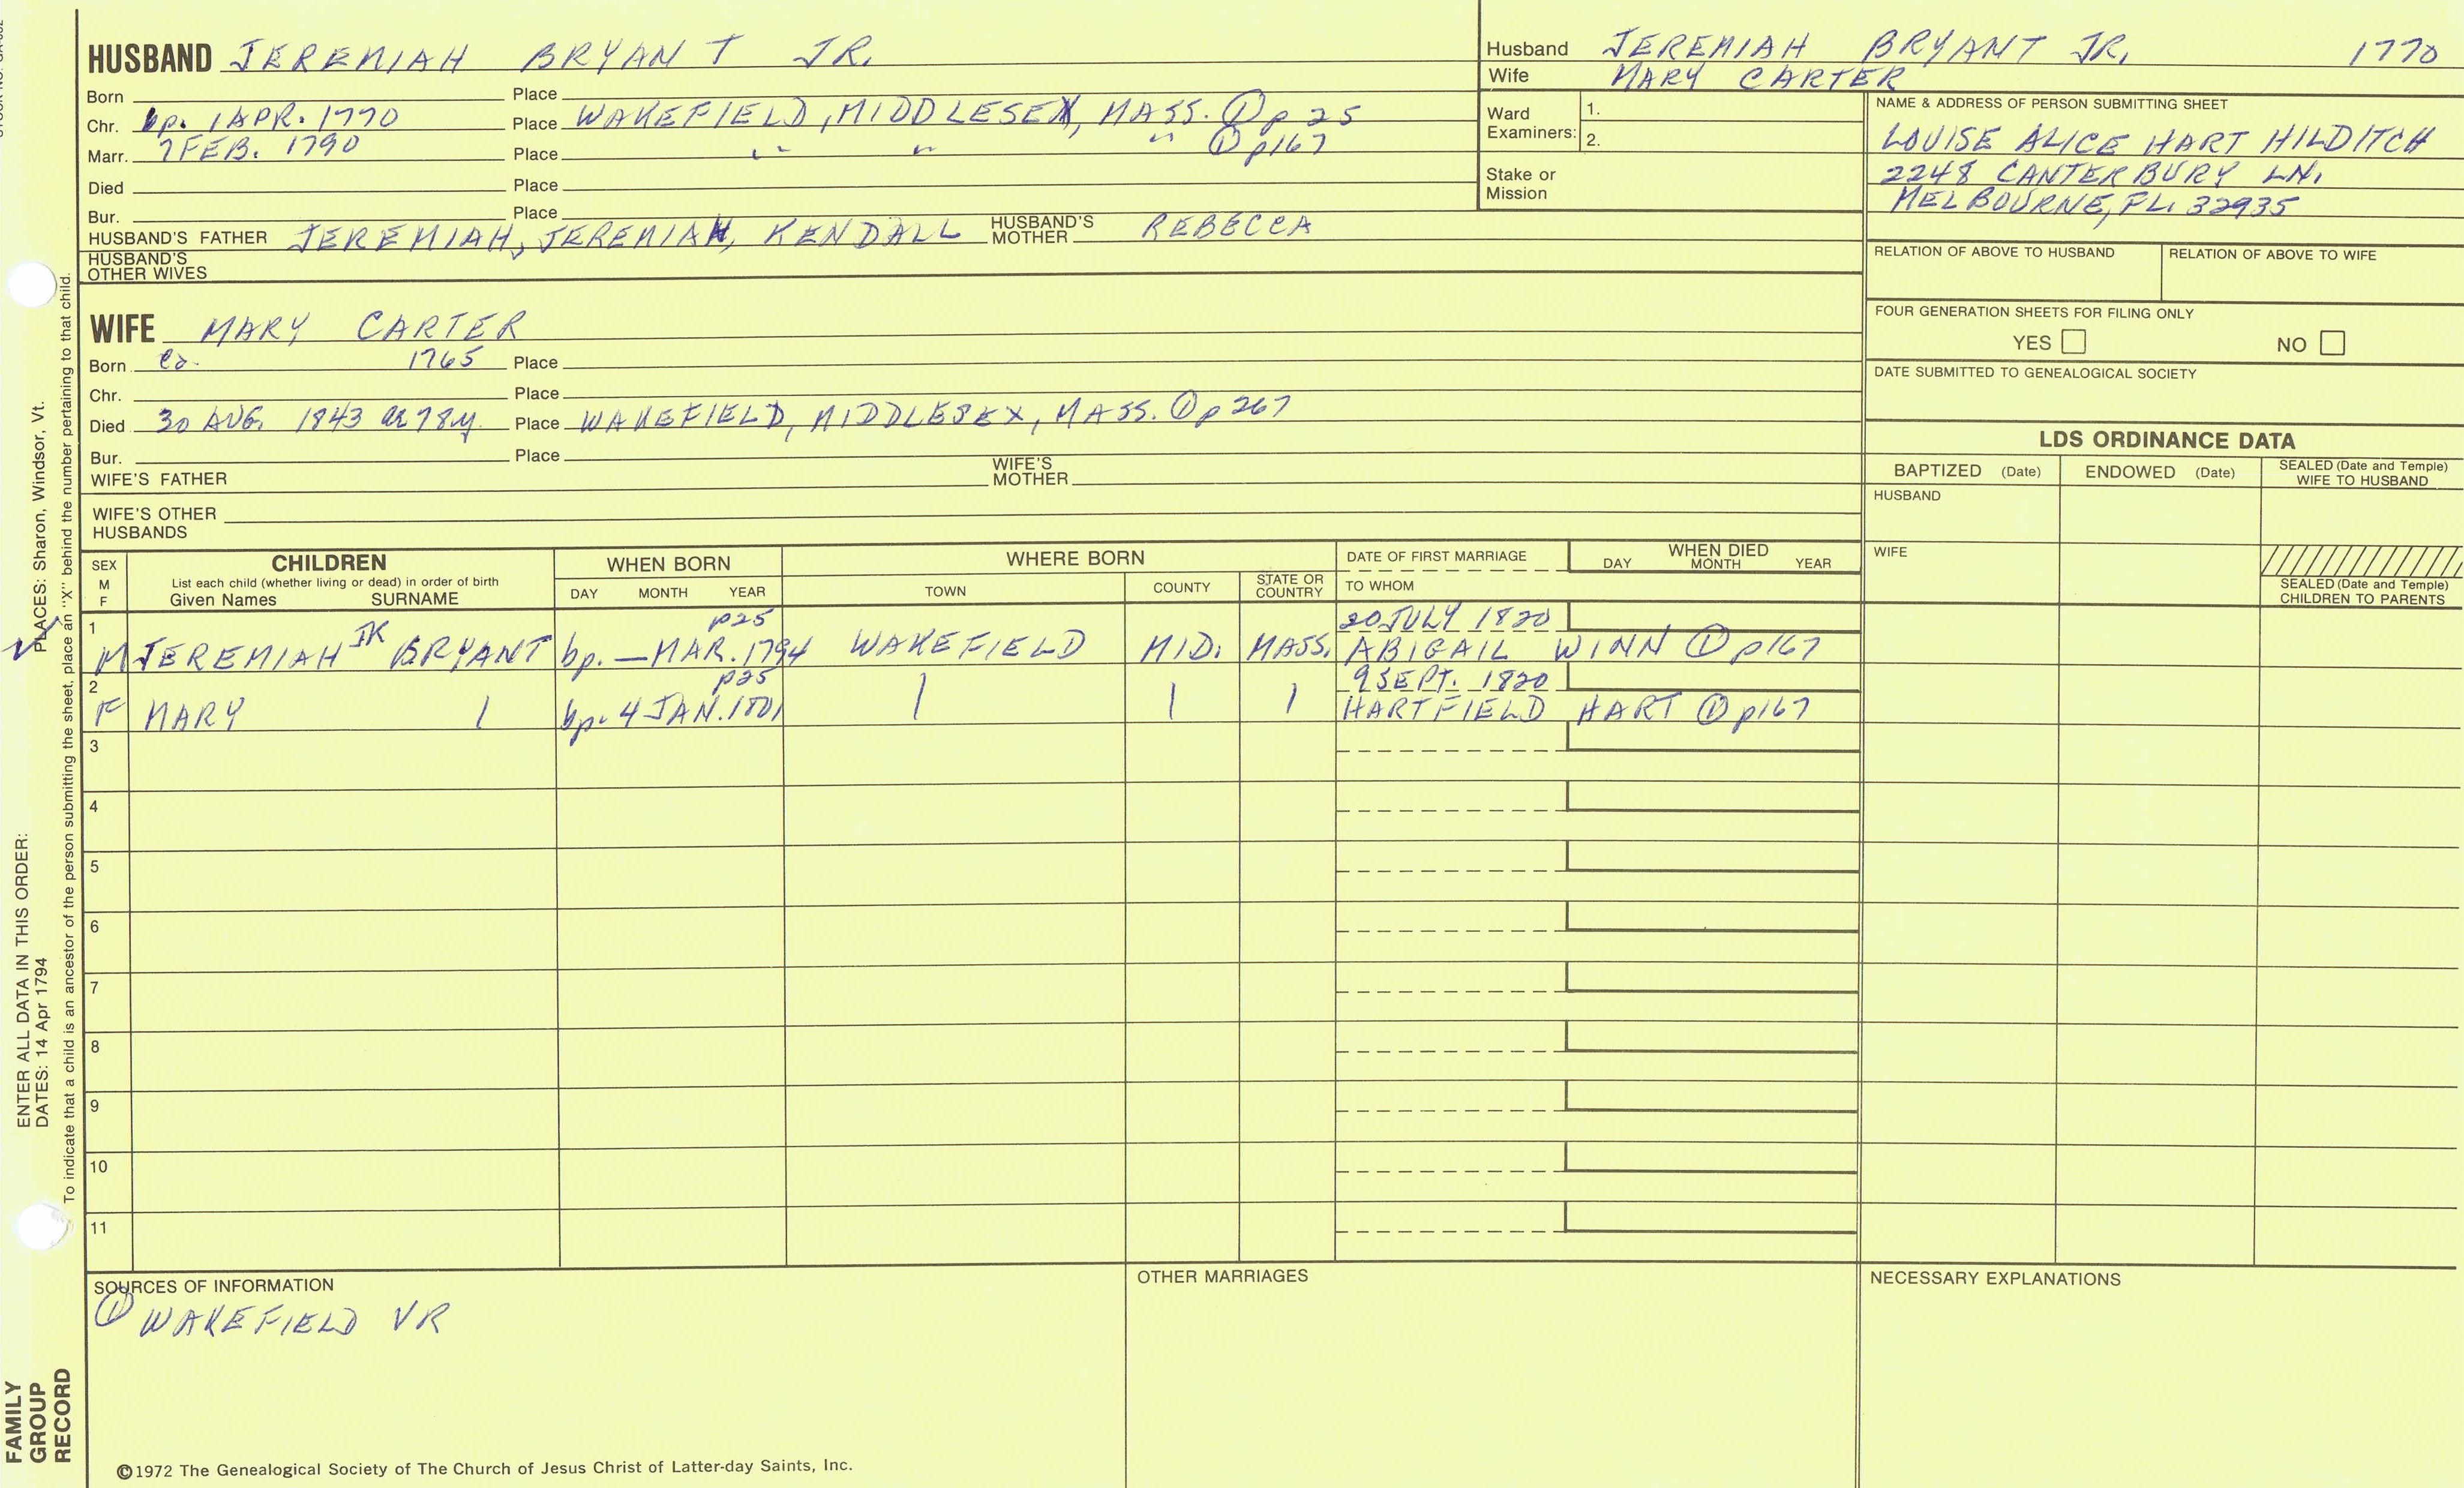 HUSBAND JEREMIAH BRYANT JR.
Born Place
Chr. bp. 1 APR. 1770 Place WAKEFIELD, MIDDLESEX, MASS. ① p 25
Marr. 7 FEB. 1790 Place " " " ① p167
Died Place
Bur. Place
HUSBAND'S FATHER JEREMIAH, JEREMIAH, KENDALL HUSBAND'S MOTHER REBECCA
HUSBAND'S OTHER WIVES
Husband JEREMIAH BRYANT JR. 1770
Wife MARY CARTER
Ward Examiners: 1.
2.
Stake or Mission
NAME & ADDRESS OF PERSON SUBMITTING SHEET
LOUISE ALICE HART HILDITCH
2248 CANTERBURY LN.
MELBOURNE, FL. 32935
RELATION OF ABOVE TO HUSBAND RELATION OF ABOVE TO WIFE
FOUR GENERATION SHEETS FOR FILING ONLY
YES NO
DATE SUBMITTED TO GENEALOGICAL SOCIETY
WIFE MARY CARTER
Born ca. 1765 Place
Chr. Place
Died 30 AUG. 1843 ae 78y. Place WAKEFIELD, MIDDLESEX, MASS. ① p 267
Bur. Place
WIFE'S FATHER WIFE'S MOTHER
WIFE'S OTHER HUSBANDS
LDS ORDINANCE DATA
BAPTIZED (Date) ENDOWED (Date) SEALED (Date and Temple) WIFE TO HUSBAND
HUSBAND
WIFE
SEALED (Date and Temple) CHILDREN TO PARENTS
SEX M F
CHILDREN
List each child (whether living or dead) in order of birth
Given Names SURNAME
WHEN BORN
DAY MONTH YEAR
WHERE BORN
TOWN COUNTY STATE OR COUNTRY
DATE OF FIRST MARRIAGE
TO WHOM
WHEN DIED
DAY MONTH YEAR
1 p25 20 JULY 1820
M JEREMIAH BRYANT bp. — MAR. 1794 WAKEFIELD MID. MASS. ABIGAIL WINN ① p167
2 p25 9 SEPT. 1820
F MARY bp. 4 JAN. 1801 HARTFIELD HART ① p167
3
4
5
6
7
8
9
10
11
SOURCES OF INFORMATION
① WAKEFIELD VR
OTHER MARRIAGES
NECESSARY EXPLANATIONS
©1972 The Genealogical Society of The Church of Jesus Christ of Latter-day Saints, Inc.
FAMILY
GROUP
RECORD
ENTER ALL DATA IN THIS ORDER:
DATES: 14 Apr 1794 PLACES: Sharon, Windsor, Vt.
To indicate that a child is an ancestor of the person submitting the sheet, place an "X" behind the number pertaining to that child.